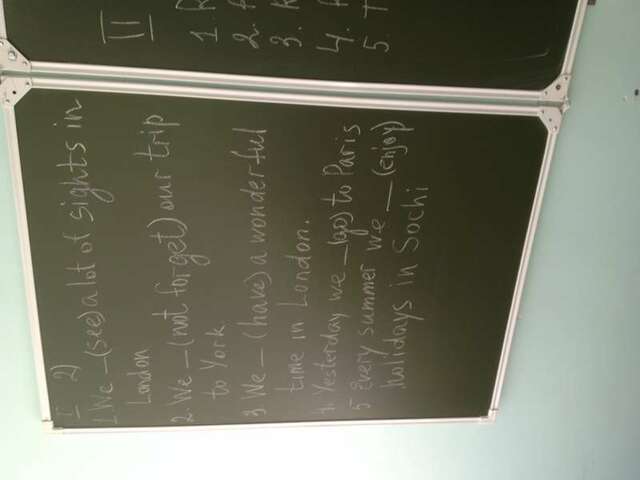 I 2)
1. We _ (see) a lot of sights in
London
2. We _ (not forget) our trip
to York
3. We _ (have) a wonderful
time in London.
4. Yesterday we _ (go) to Paris
5. Every summer we _ (enjoy)
holidays in Sochi
II
1.
2.
3.
4.
5. T